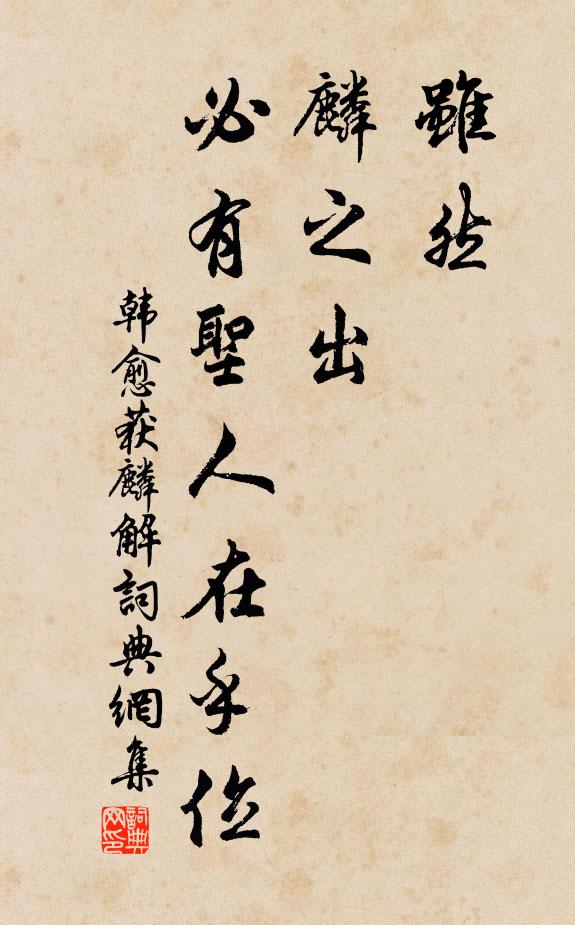 雖然
麟之出
必有聖人在乎位
韩愈获麟解詞典網集
詞典
网印